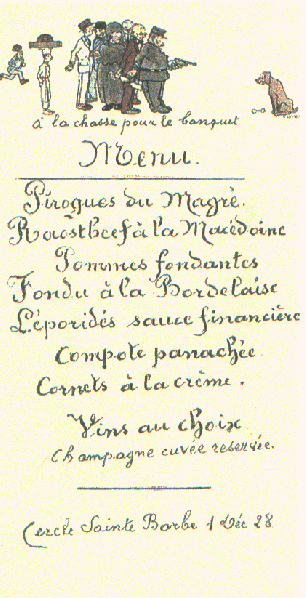 à la chasse pour le banquet
Menu.
Pirogues du Magré.
Roastbeef à la Macédoine
Pommes fondantes
Fondu à la Bordelaise
Léporidés sauce financière
Compote panachée
Cornets à la crème.
Vins au choix
Champagne cuvée reservée.
Cercle Sainte Barbe 1 Déc 28